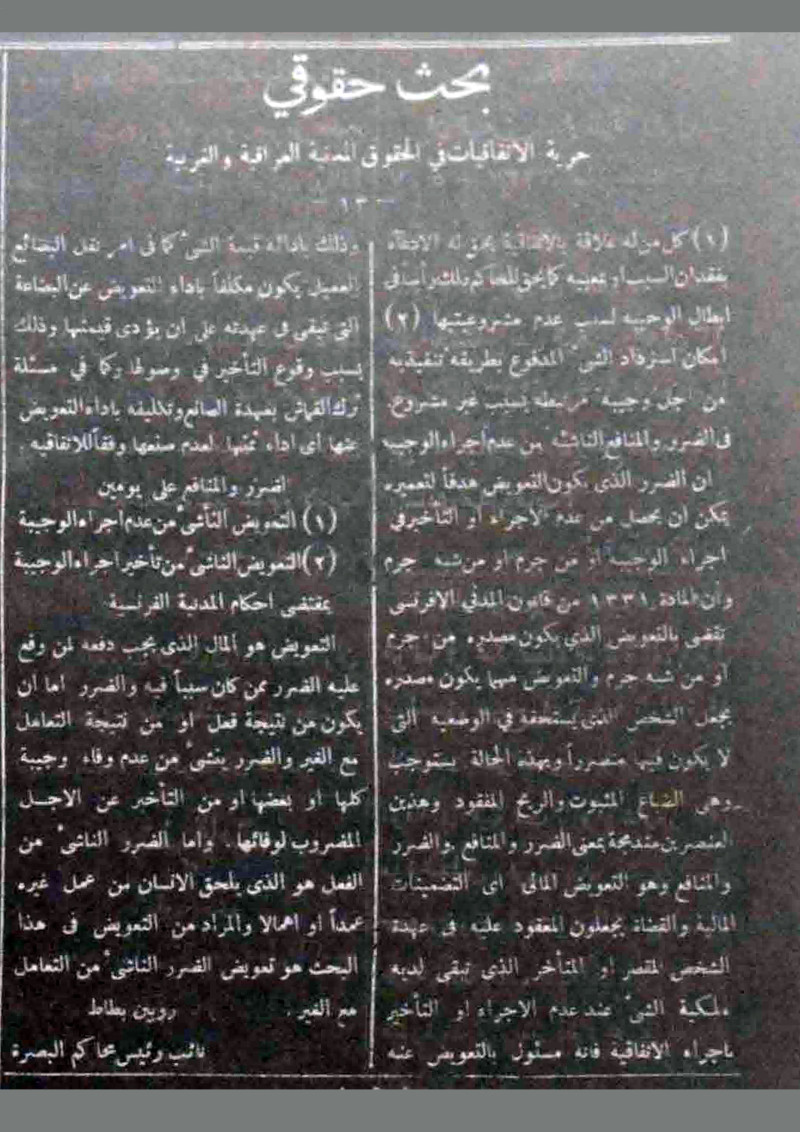 بحث حقوقي
حرية الاتفاقيات في الحقوق المدنية العراقية والغربية
- ١٣ -
(١) كل من له علاقة بالاتفاقية يحق له الادعاء
بفقدان السبب او بعيبه كما يحق للمحاكم ذلك رأسا في
ابطال الوجيبه لسبب عدم مشروعيتها (٢)
امكان استرداد الشيء المدفوع بطريقه تنفيذيه
من اجل وجيبة مرتبطه بسبب غير مشروع.
في الضرر والمنافع الناشئه من عدم اجراء الوجيبه
ان الضرر الذي يكون التعويض هدفاً لتعميره
يمكن ان يحصل من عدم الاجراء او التأخير في
اجراء الوجيبه او من جرم او من شبه جرم
وأن المادة ١٣٣١ من قانون المدني الافرنسي
تقضى بالتعويض الذي يكون مصدره من جرم
او من شبه جرم والتعويض مهما يكون مصدره
يجعل الشخص الذي يستحقه في الوضعيه التي
لا يكون فيها متضرراً وبهذه الحالة يستوجب
وهي الضياع المثبوت والربح المفقود وهذين
العنصرين مندمجة بمعنى الضرر والمنافع. والضرر
والمنافع وهو التعويض المالى اى التضمينات
المالية والقضاة يجعلون المعقود عليه في عهدة
الشخص المقصر او المتأخر الذي تبقى لديه
ملكية الشيء عند عدم الاجراء او التأخير
باجراء الاتفاقية فانه مسئول بالتعويض عنه
وذلك بادائه قيمة الشيء كما في امر نقل البضائع
العميل يكون مكلفاً باداء التعويض عن البضاعة
التى تبقى في عهدته على ان يؤدى قيمتها وذلك
بسبب وقوع التأخير في وصولها وكما في مسئلة
ترك القماش بعهدة الصانع وتكليفه باداء التعويض
عنها اى اداء ثمنها لعدم صنعها وفقاً للاتفاقيه.
الضرر والمنافع على نوعين
(١) التعويض الناشئ من عدم اجراء الوجيبة
(٢) التعويض الناشئ من تأخير اجراء الوجيبة
بمقتضى احكام المدنية الفرنسية
التعويض هو المال الذى يجب دفعه لمن وقع
عليه الضرر ممن كان سبباً فيه والضرر اما ان
يكون من نتيجة فعل او من نتيجة التعامل
مع الغير والضرر ينشئ من عدم وفاء وجيبة
كلها او بعضها او من التأخير عن الاجل
المضروب لوفائها. واما الضرر الناشئ من
الفعل هو الذى يلحق الانسان من عمل غيره
عمداً او اهمالا والمراد من التعويض في هذا
البحث هو تعويض الضرر الناشئ من التعامل
مع الغير. روبين بطاط
نائب رئيس محاكم البصرة